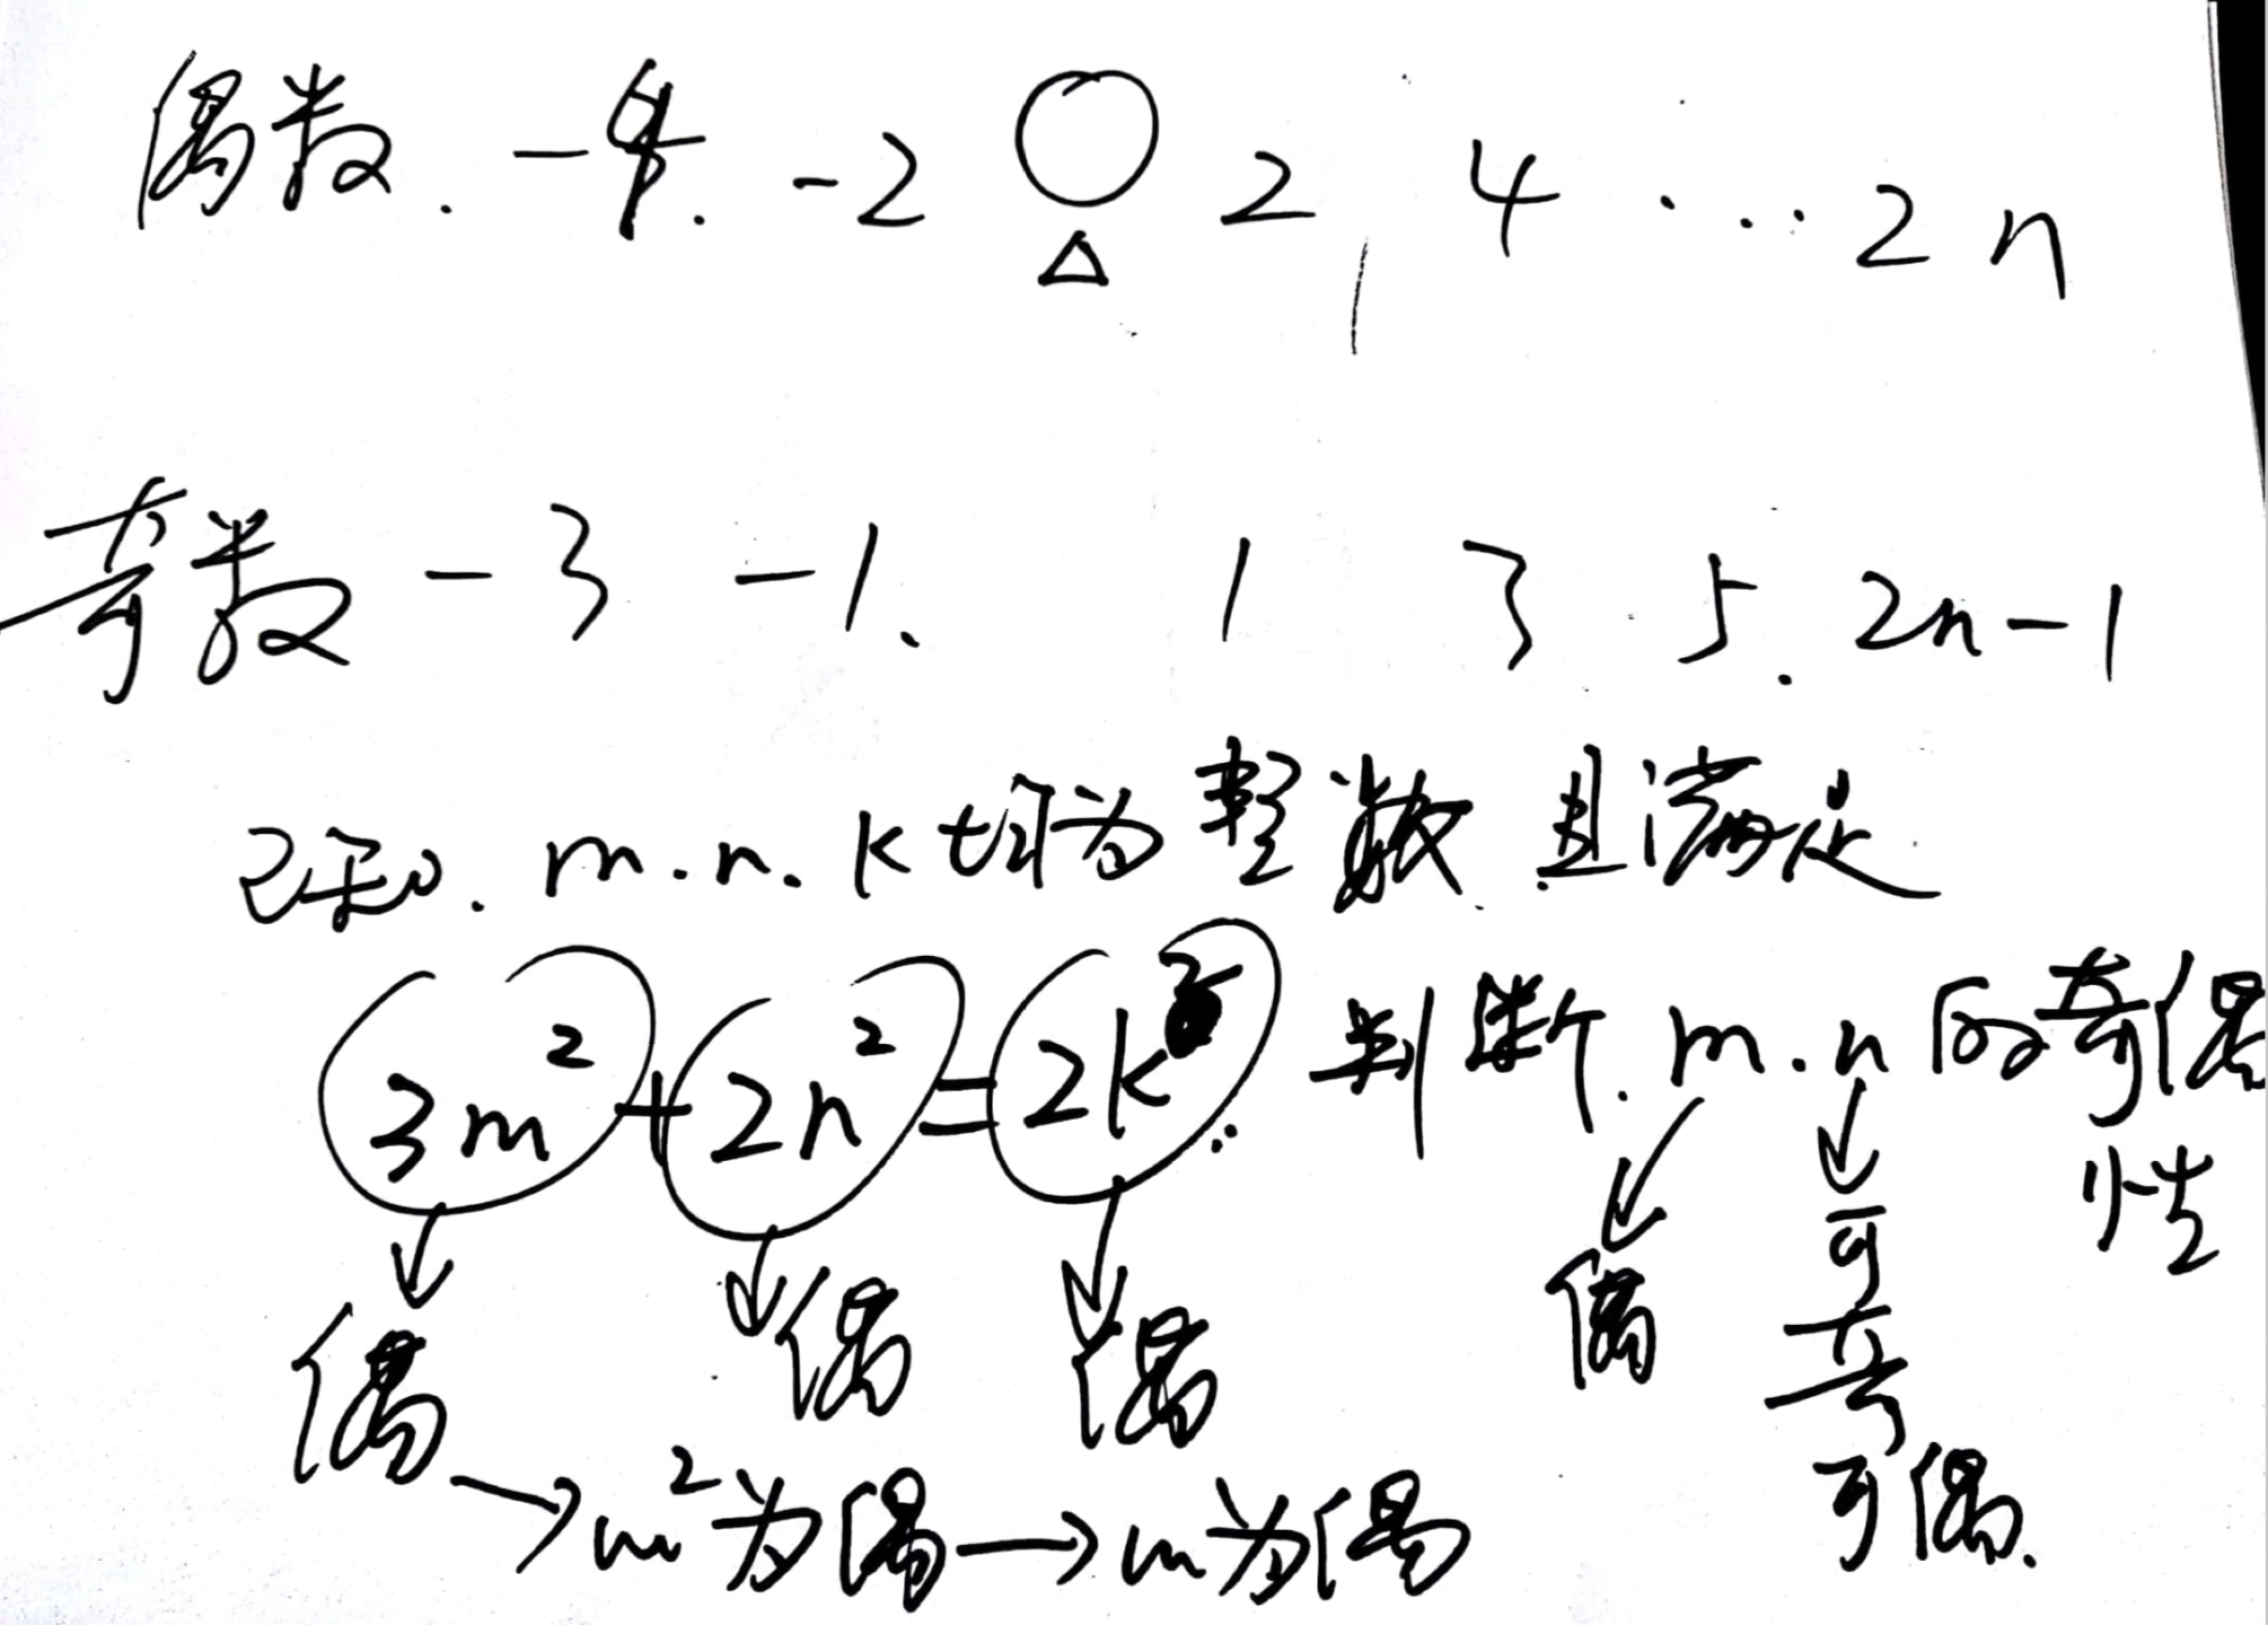 偶数. -4. -2 0 2, 4 ... 2n
奇数 -3 -1. 1 3 5. 2n-1
已知. m.n.k均为整数 且满足
3m²+2n²=2k 判断.m.n的奇偶
性
偶 偶 偶 偶 可奇可偶.
→m²为偶→m为偶